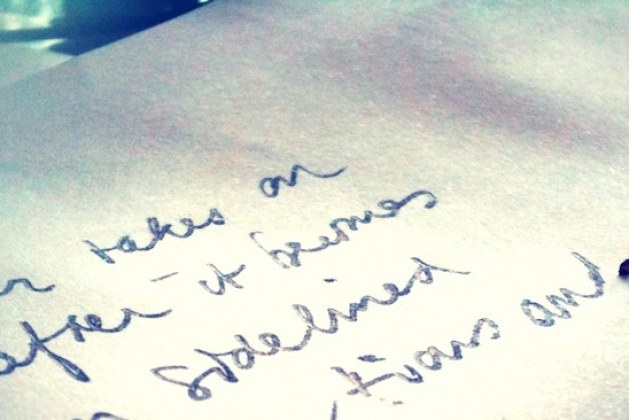 takes on
after - it becomes
sidelined
tions and